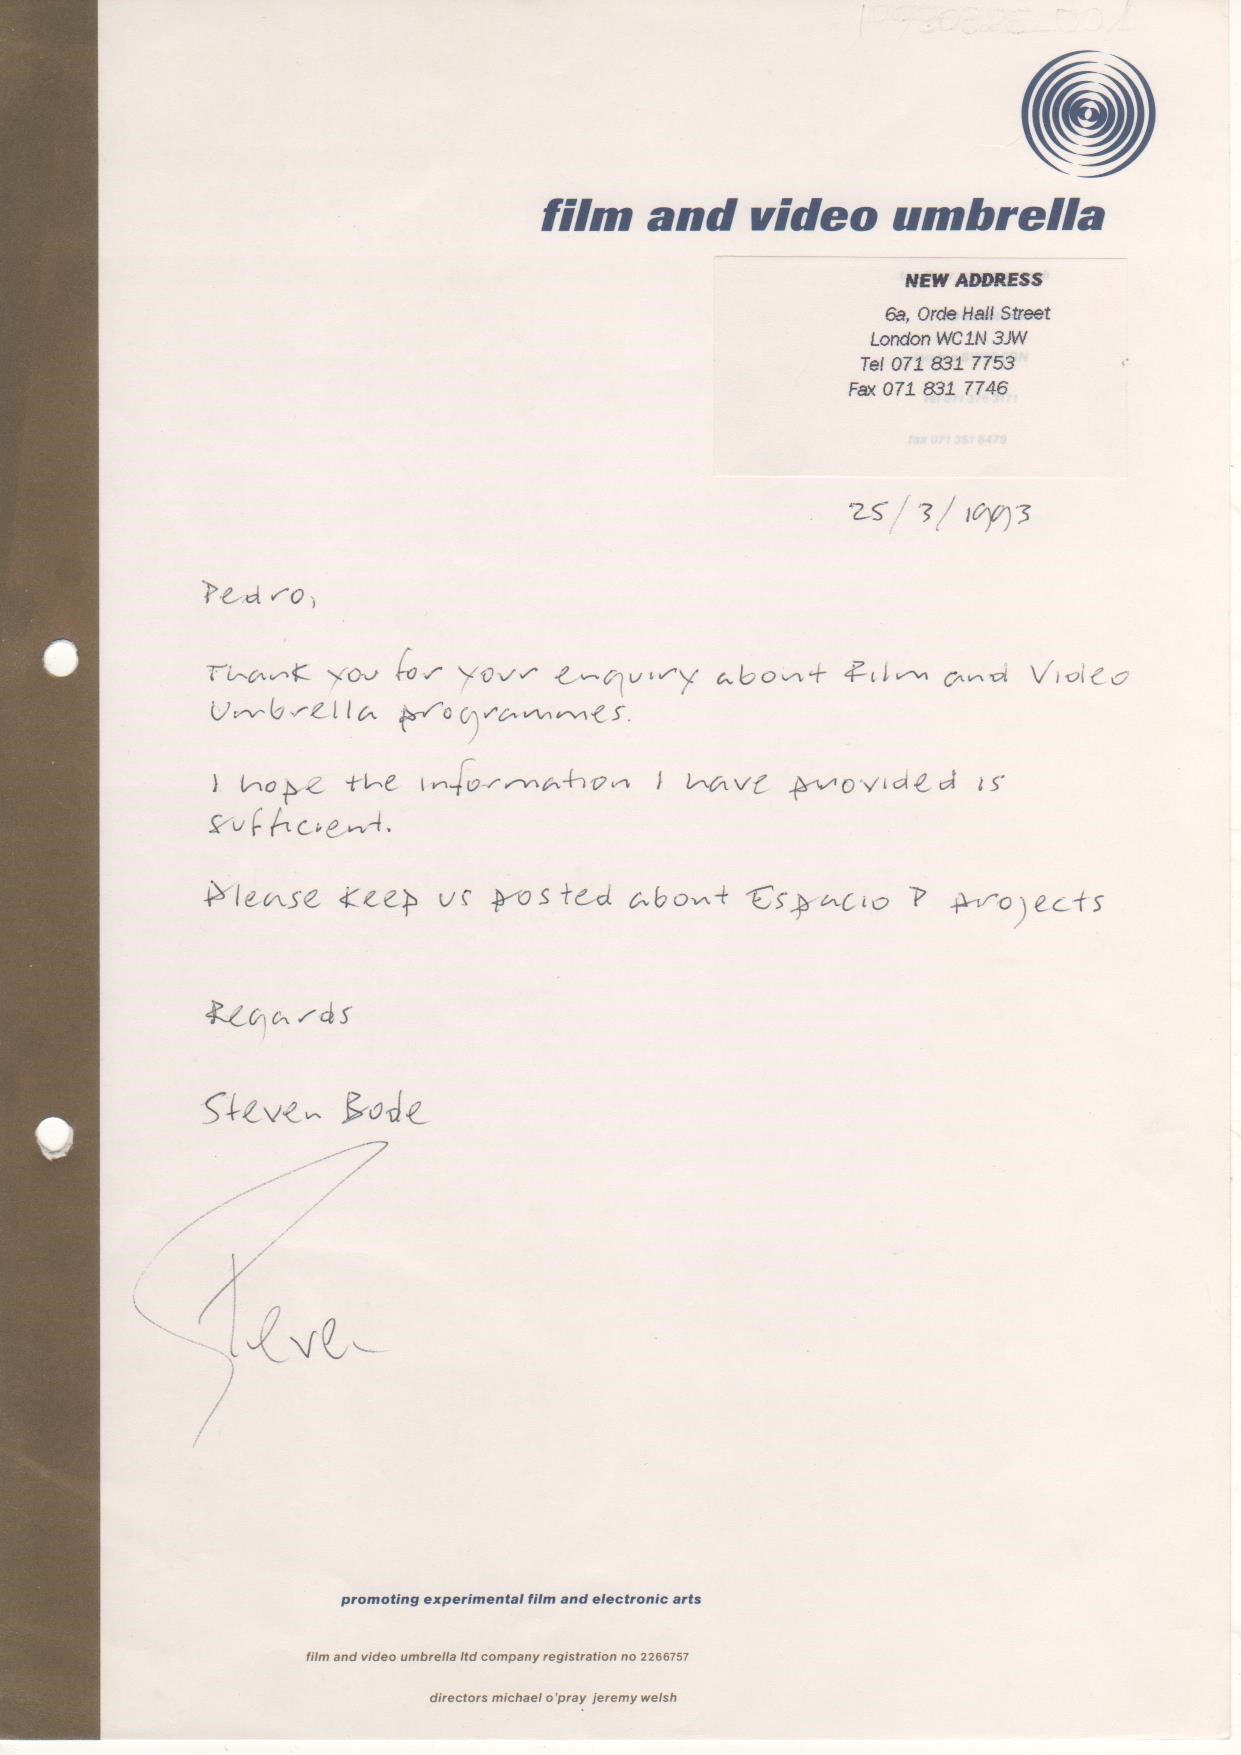 film and video umbrella
NEW ADDRESS
6a, Orde Hall Street
London WC1N 3JW
Tel 071 831 7753
Fax 071 831 7746
fax 071 351 6479
25/3/1993
Pedro,
Thank you for your enquiry about Film and Video
Umbrella programmes.
I hope the information I have provided is
sufficient.
Please keep us posted about Espacio P projects
Regards
Steven Bode
Steven
promoting experimental film and electronic arts
film and video umbrella ltd company registration no 2266757
directors michael o'pray jeremy welsh